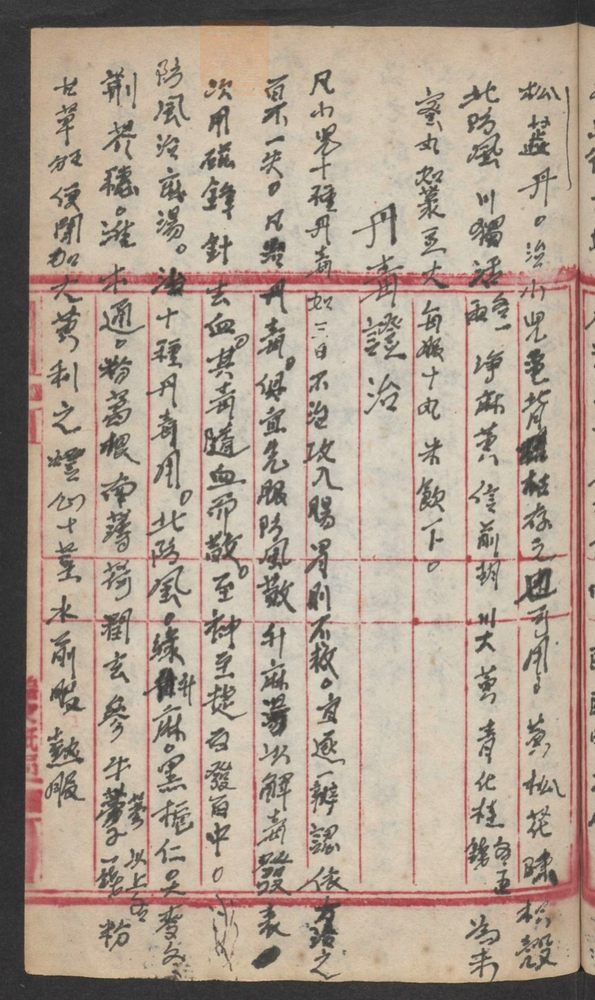 松蕊丹。治小兒龜背但存之也可用 黃松花 枳殼
北防風 川獨活各一兩 淨麻黃 信前胡 川大黃 青化桂各五錢 為末
蜜丸如菉豆大 每服十丸 米飲下。
丹毒證治
凡小兒十種丹毒如三日不治攻入腸胃則不救。宜逐一辨認依方治之
百不一失。凡患丹毒俱宜先服防風散升麻湯以解毒發表
次用磁鋒針去血。其毒隨血而散。至神至捷百發百中。
防風升麻湯。治十種丹毒用。北防風。綠升麻。黑梔仁。大麥冬
荊芥穗。淮木通。粉葛根 南薄荷 潤玄參 牛蒡子 以上各一錢 粉
甘草 便閉加大黃利之燈心十莖水煎服熱服